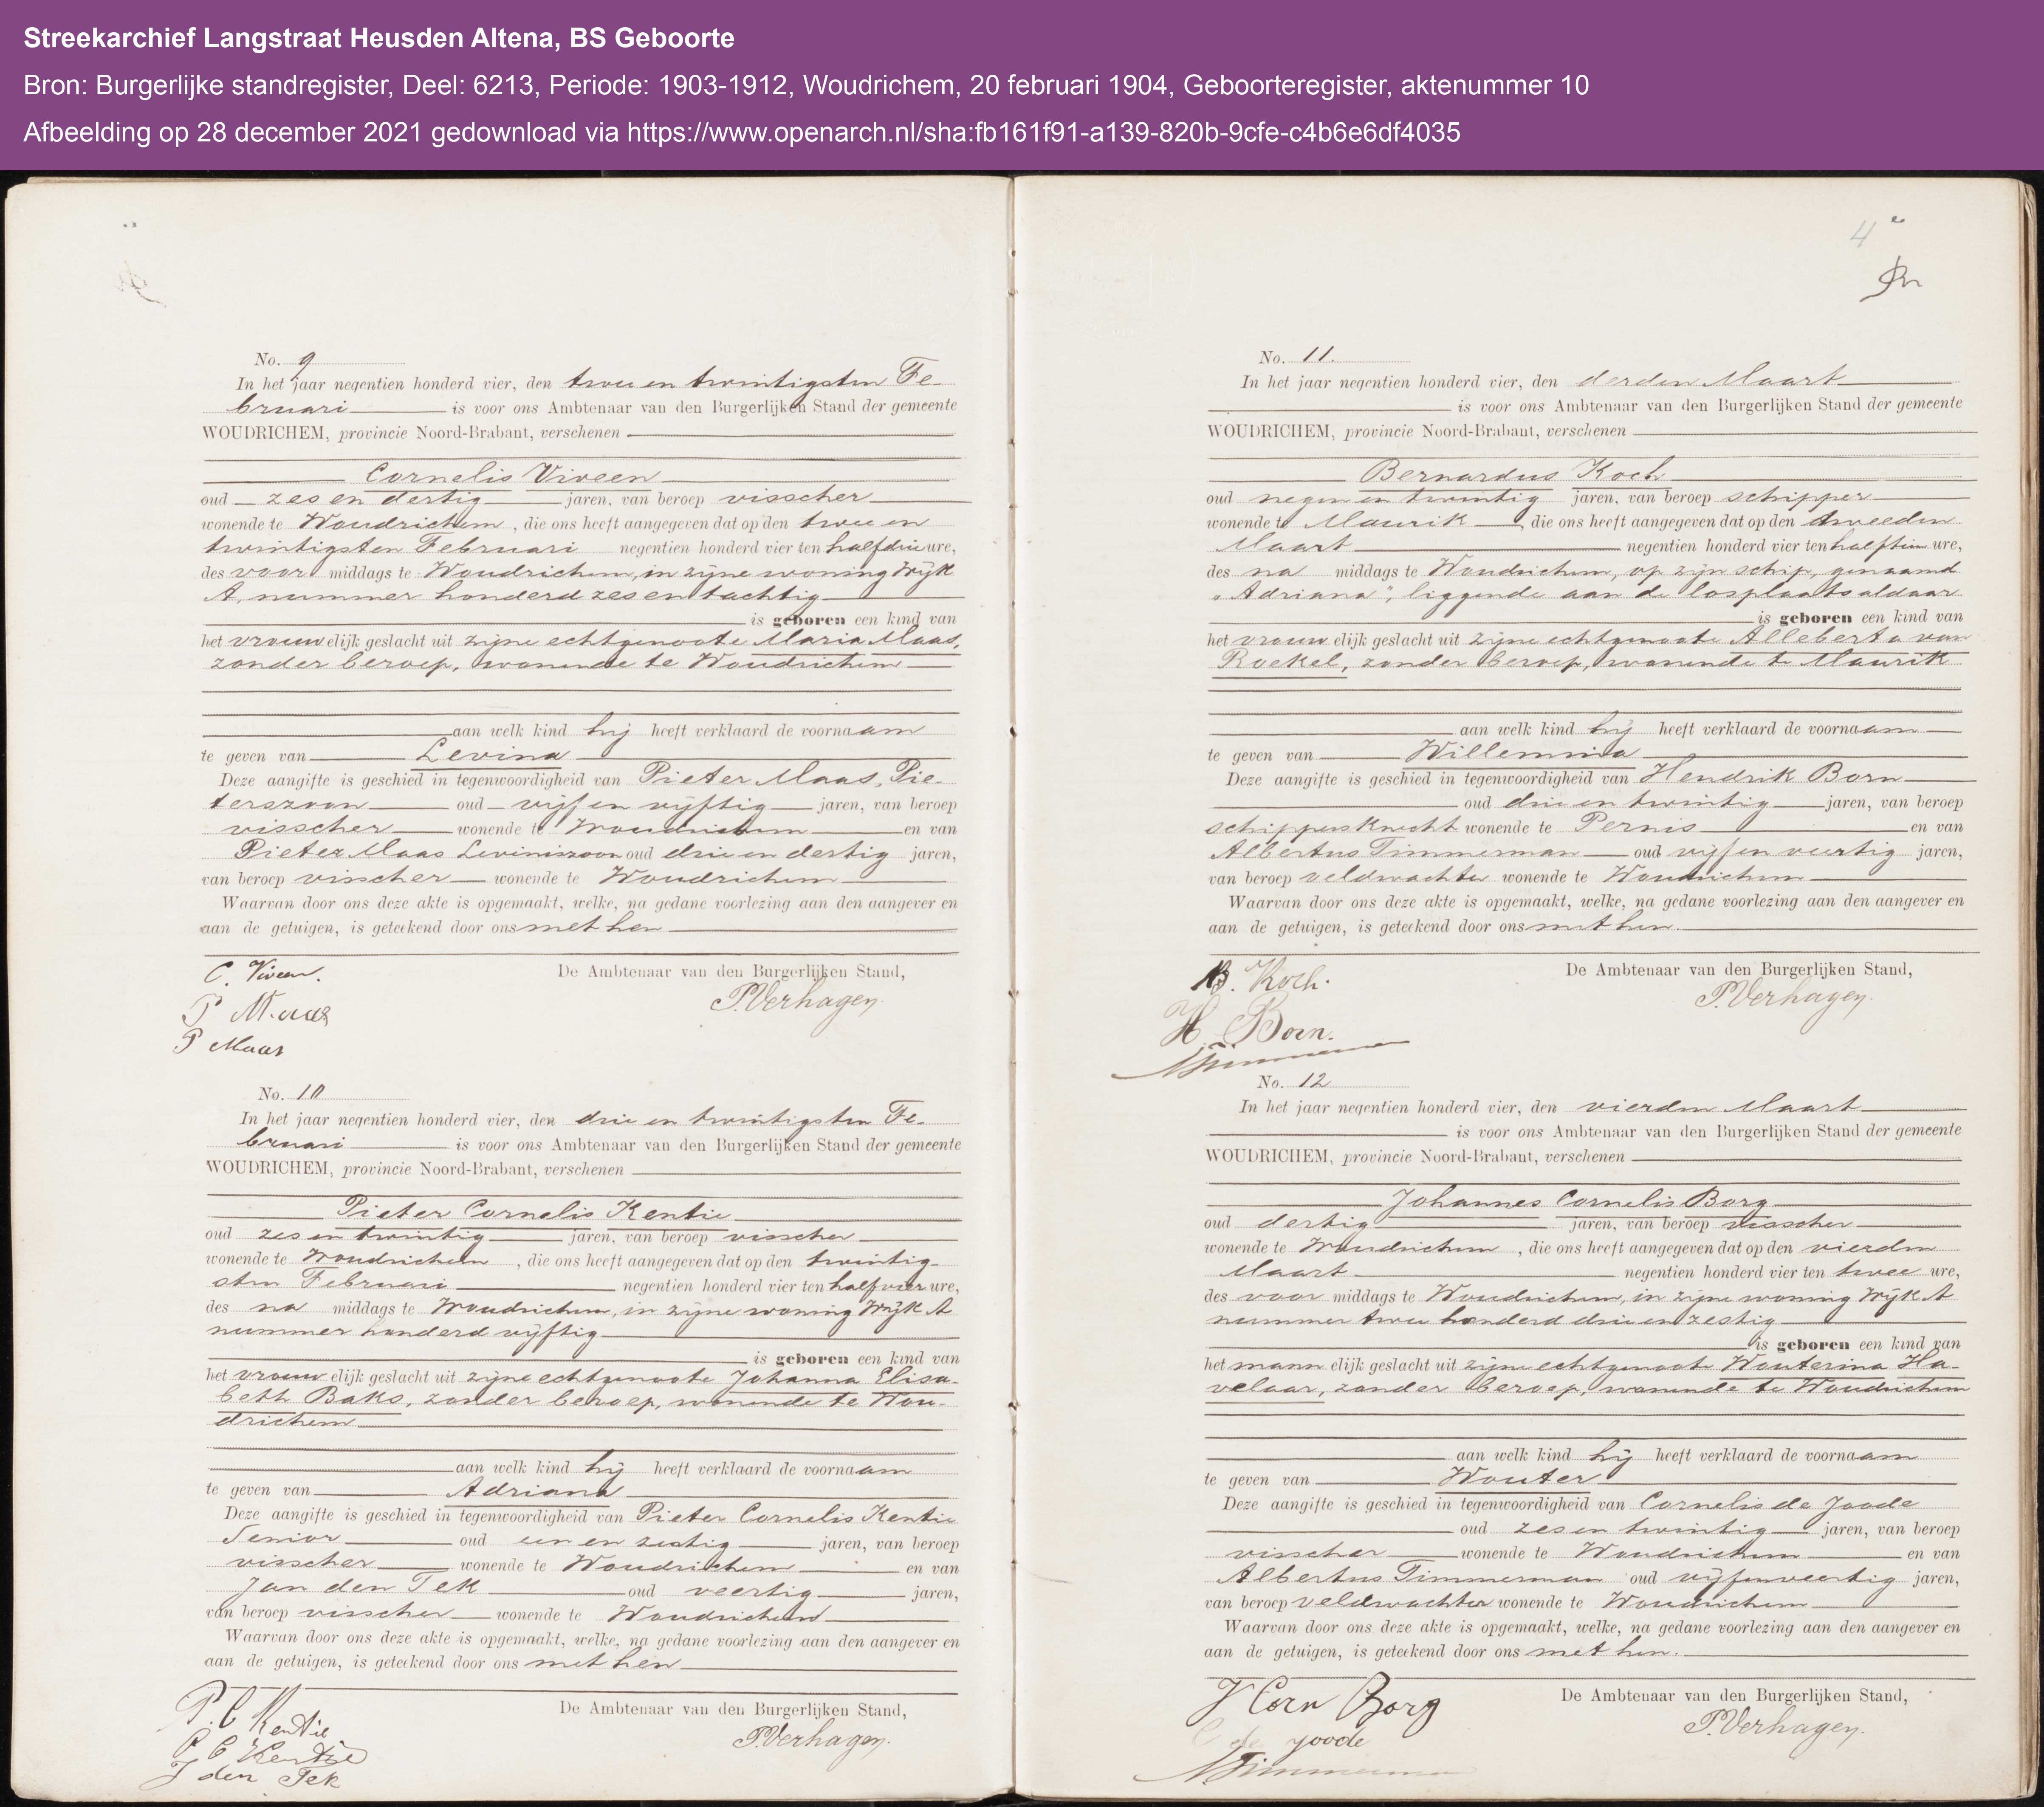 Streekarchief Langstraat Heusden Altena, BS Geboorte
Bron: Burgerlijke standregister, Deel: 6213, Periode: 1903-1912, Woudrichem, 20 februari 1904, Geboorteregister, aktenummer 10
Afbeelding op 28 december 2021 gedownload via https://www.openarch.nl/sha:fb161f91-a139-820b-9cfe-c4b6e6df4035
No. 9
In het jaar negentien honderd vier, den twee en twintigsten Fe-
bruari is voor ons Ambtenaar van den Burgerlijken Stand der gemeente
WOUDRICHEM, provincie Noord-Brabant, verschenen
Cornelis Viveen
oud zes en dertig jaren, van beroep visscher
wonende te Woudrichem, die ons heeft aangegeven dat op den twee en
twintigsten Februari negentien honderd vier ten half drie ure,
des voor middags te Woudrichem, in zijne woning Wijk
A, nummer honderd zes en tachtig
is geboren een kind van
het vrouwelijk geslacht uit zijne echtgenoote Maria Maas,
zonder beroep, wonende te Woudrichem
aan welk kind hij heeft verklaard de voornaam
te geven van Levina
Deze aangifte is geschied in tegenwoordigheid van Pieter Maas, Pie-
terszoon oud vijf en vijftig jaren, van beroep
visscher wonende te Woudrichem en van
Pieter Maas Leviniszoon oud drie en dertig jaren,
van beroep visscher wonende te Woudrichem
Waarvan door ons deze akte is opgemaakt, welke, na gedane voorlezing aan den aangever en
aan de getuigen, is geteekend door ons met hen
C. Viveen. De Ambtenaar van den Burgerlijken Stand,
P Maas P. Verhagen.
P Maas
No. 10
In het jaar negentien honderd vier, den drie en twintigsten Fe-
bruari is voor ons Ambtenaar van den Burgerlijken Stand der gemeente
WOUDRICHEM, provincie Noord-Brabant, verschenen
Pieter Cornelis Kentie
oud zes en twintig jaren, van beroep visscher
wonende te Woudrichem, die ons heeft aangegeven dat op den twintig-
sten Februari negentien honderd vier ten half vier ure,
des na middags te Woudrichem, in zijne woning Wijk A
nummer honderd vijftig
is geboren een kind van
het vrouwelijk geslacht uit zijne echtgenoote Johanna Elisa-
beth Baks, zonder beroep, wonende te Wou-
drichem
aan welk kind hij heeft verklaard de voornaam
te geven van Adriana
Deze aangifte is geschied in tegenwoordigheid van Pieter Cornelis Kentie
Senior oud een en zestig jaren, van beroep
visscher wonende te Woudrichem en van
Jan den Tek oud veertig jaren,
van beroep visscher wonende te Woudrichem
Waarvan door ons deze akte is opgemaakt, welke, na gedane voorlezing aan den aangever en
aan de getuigen, is geteekend door ons met hen
P. C Kentie De Ambtenaar van den Burgerlijken Stand,
P C Kentie P. Verhagen.
J den Tek
4
No. 11.
In het jaar negentien honderd vier, den derden Maart
is voor ons Ambtenaar van den Burgerlijken Stand der gemeente
WOUDRICHEM, provincie Noord-Brabant, verschenen
Bernardus Koch
oud negen en twintig jaren, van beroep schipper
wonende te Maurik, die ons heeft aangegeven dat op den tweeden
Maart negentien honderd vier ten half tien ure,
des na middags te Woudrichem, op zijn schip, genaamd
"Adriana", liggende aan de losplaats aldaar
is geboren een kind van
het vrouwelijk geslacht uit zijne echtgenoote Alleberta van
Roekel, zonder beroep, wonende te Maurik
aan welk kind hij heeft verklaard de voornaam
te geven van Willemina
Deze aangifte is geschied in tegenwoordigheid van Hendrik Born
oud drie en twintig jaren, van beroep
schippersknecht wonende te Pernis en van
Albertus Timmerman oud vijf en veertig jaren,
van beroep veldwachter wonende te Woudrichem
Waarvan door ons deze akte is opgemaakt, welke, na gedane voorlezing aan den aangever en
aan de getuigen, is geteekend door ons met hen.
B. Koch. De Ambtenaar van den Burgerlijken Stand,
H Born. P. Verhagen.
ATimmerman
No. 12
In het jaar negentien honderd vier, den vierden Maart
is voor ons Ambtenaar van den Burgerlijken Stand der gemeente
WOUDRICHEM, provincie Noord-Brabant, verschenen
Johannes Cornelis Borg
oud dertig jaren, van beroep visscher
wonende te Woudrichem, die ons heeft aangegeven dat op den vierden
Maart negentien honderd vier ten twee ure,
des voor middags te Woudrichem, in zijne woning Wijk A
nummer twee honderd drie en zestig
is geboren een kind van
het mannelijk geslacht uit zijne echtgenoote Wouterina Ha-
velaar, zonder beroep, wonende te Woudrichem
aan welk kind hij heeft verklaard de voornaam
te geven van Wouter
Deze aangifte is geschied in tegenwoordigheid van Cornelis de Joode
oud zes en twintig jaren, van beroep
visscher wonende te Woudrichem en van
Albertus Timmerman oud vijf en veertig jaren,
van beroep veldwachter wonende te Woudrichem
Waarvan door ons deze akte is opgemaakt, welke, na gedane voorlezing aan den aangever en
aan de getuigen, is geteekend door ons met hen.
J Corn Borg De Ambtenaar van den Burgerlijken Stand,
C de joode P. Verhagen.
ATimmerman